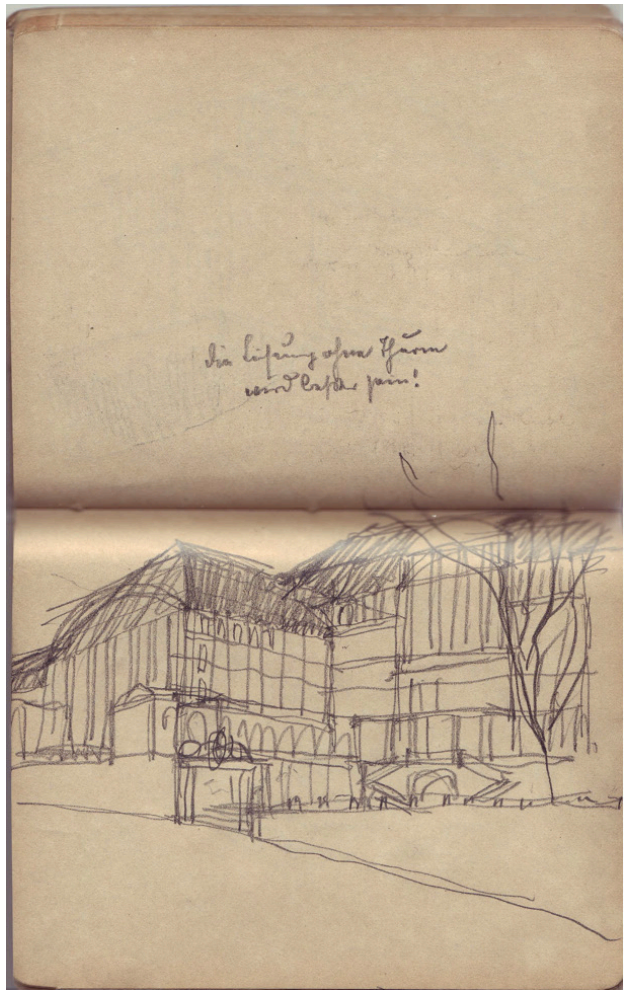 die Lösung ohne Thurm
wird besser sein!